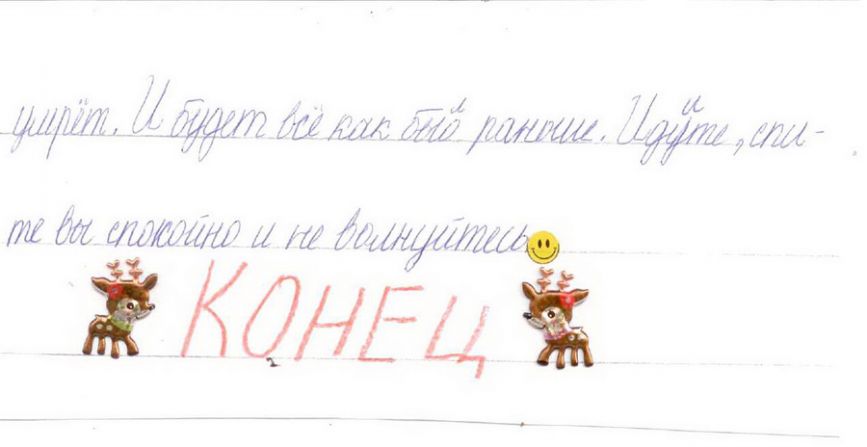 умрёт. И будет всё как было раньше. Идите, спи-
те вы спокойно и не волнуйтесь
КОНЕЦ
2